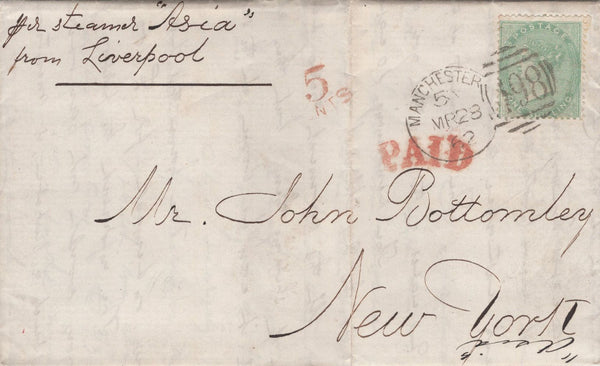 per steamer "Asia"
from Liverpool
5
NTS
MANCHESTER
MR 28
498
POSTAGE
PAID
Mr. John Bottomley
New York